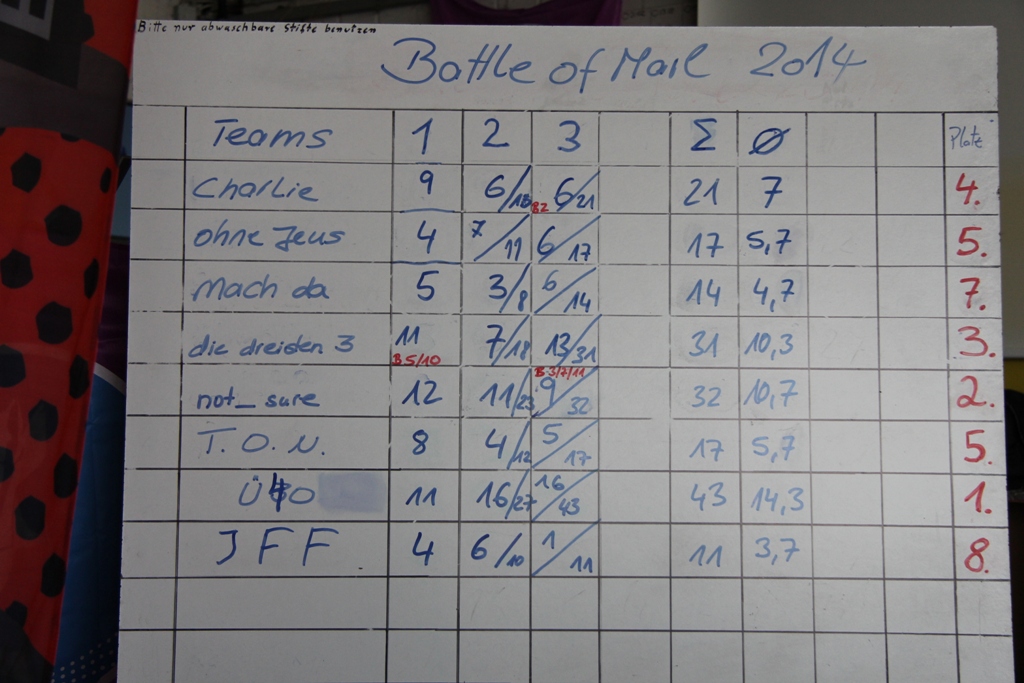 Bitte nur abwaschbare Stifte benutzen
Battle of Mail 2014
Teams 1 2 3 Σ Ø Platz
Charlie 9 6/18 B2 6/21 21 7 4.
ohne Jeus 4 7/11 6/17 17 5,7 5.
Mach da 5 3/8 6/14 14 4,7 7.
die dreisten 3 11 7/18 13/31 31 10,3 3.
B 5/10
B 3/7/11
not_sure 12 11/23 9/32 32 10,7 2.
T.O.N. 8 4/12 5/17 17 5,7 5.
Ü40 11 16/27 16/43 43 14,3 1.
JFF 4 6/10 1/11 11 3,7 8.